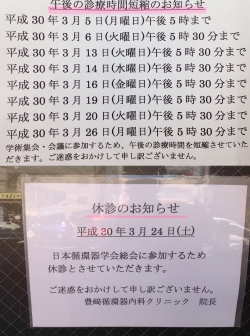 午後の診療時間短縮のお知らせ
平成30年3月5日(月曜日)午後5時まで
平成30年3月6日(火曜日)午後5時30分まで
平成30年3月13日(火曜日)午後5時30分まで
平成30年3月14日(水曜日)午後5時30分まで
平成30年3月16日(金曜日)午後5時30分まで
平成30年3月19日(月曜日)午後5時30分まで
平成30年3月20日(火曜日)午後5時30分まで
平成30年3月26日(月曜日)午後5時30分まで
学術集会・会議に参加するため、午後の診療時間を短縮させていた
だきます。ご迷惑をおかけして申し訳ございません。
休診のお知らせ
平成30年3月24日(土)
日本循環器学会総会に参加するため
休診とさせていただきます。
ご迷惑をおかけして申し訳ございません。
豊崎循環器内科クリニック 院長